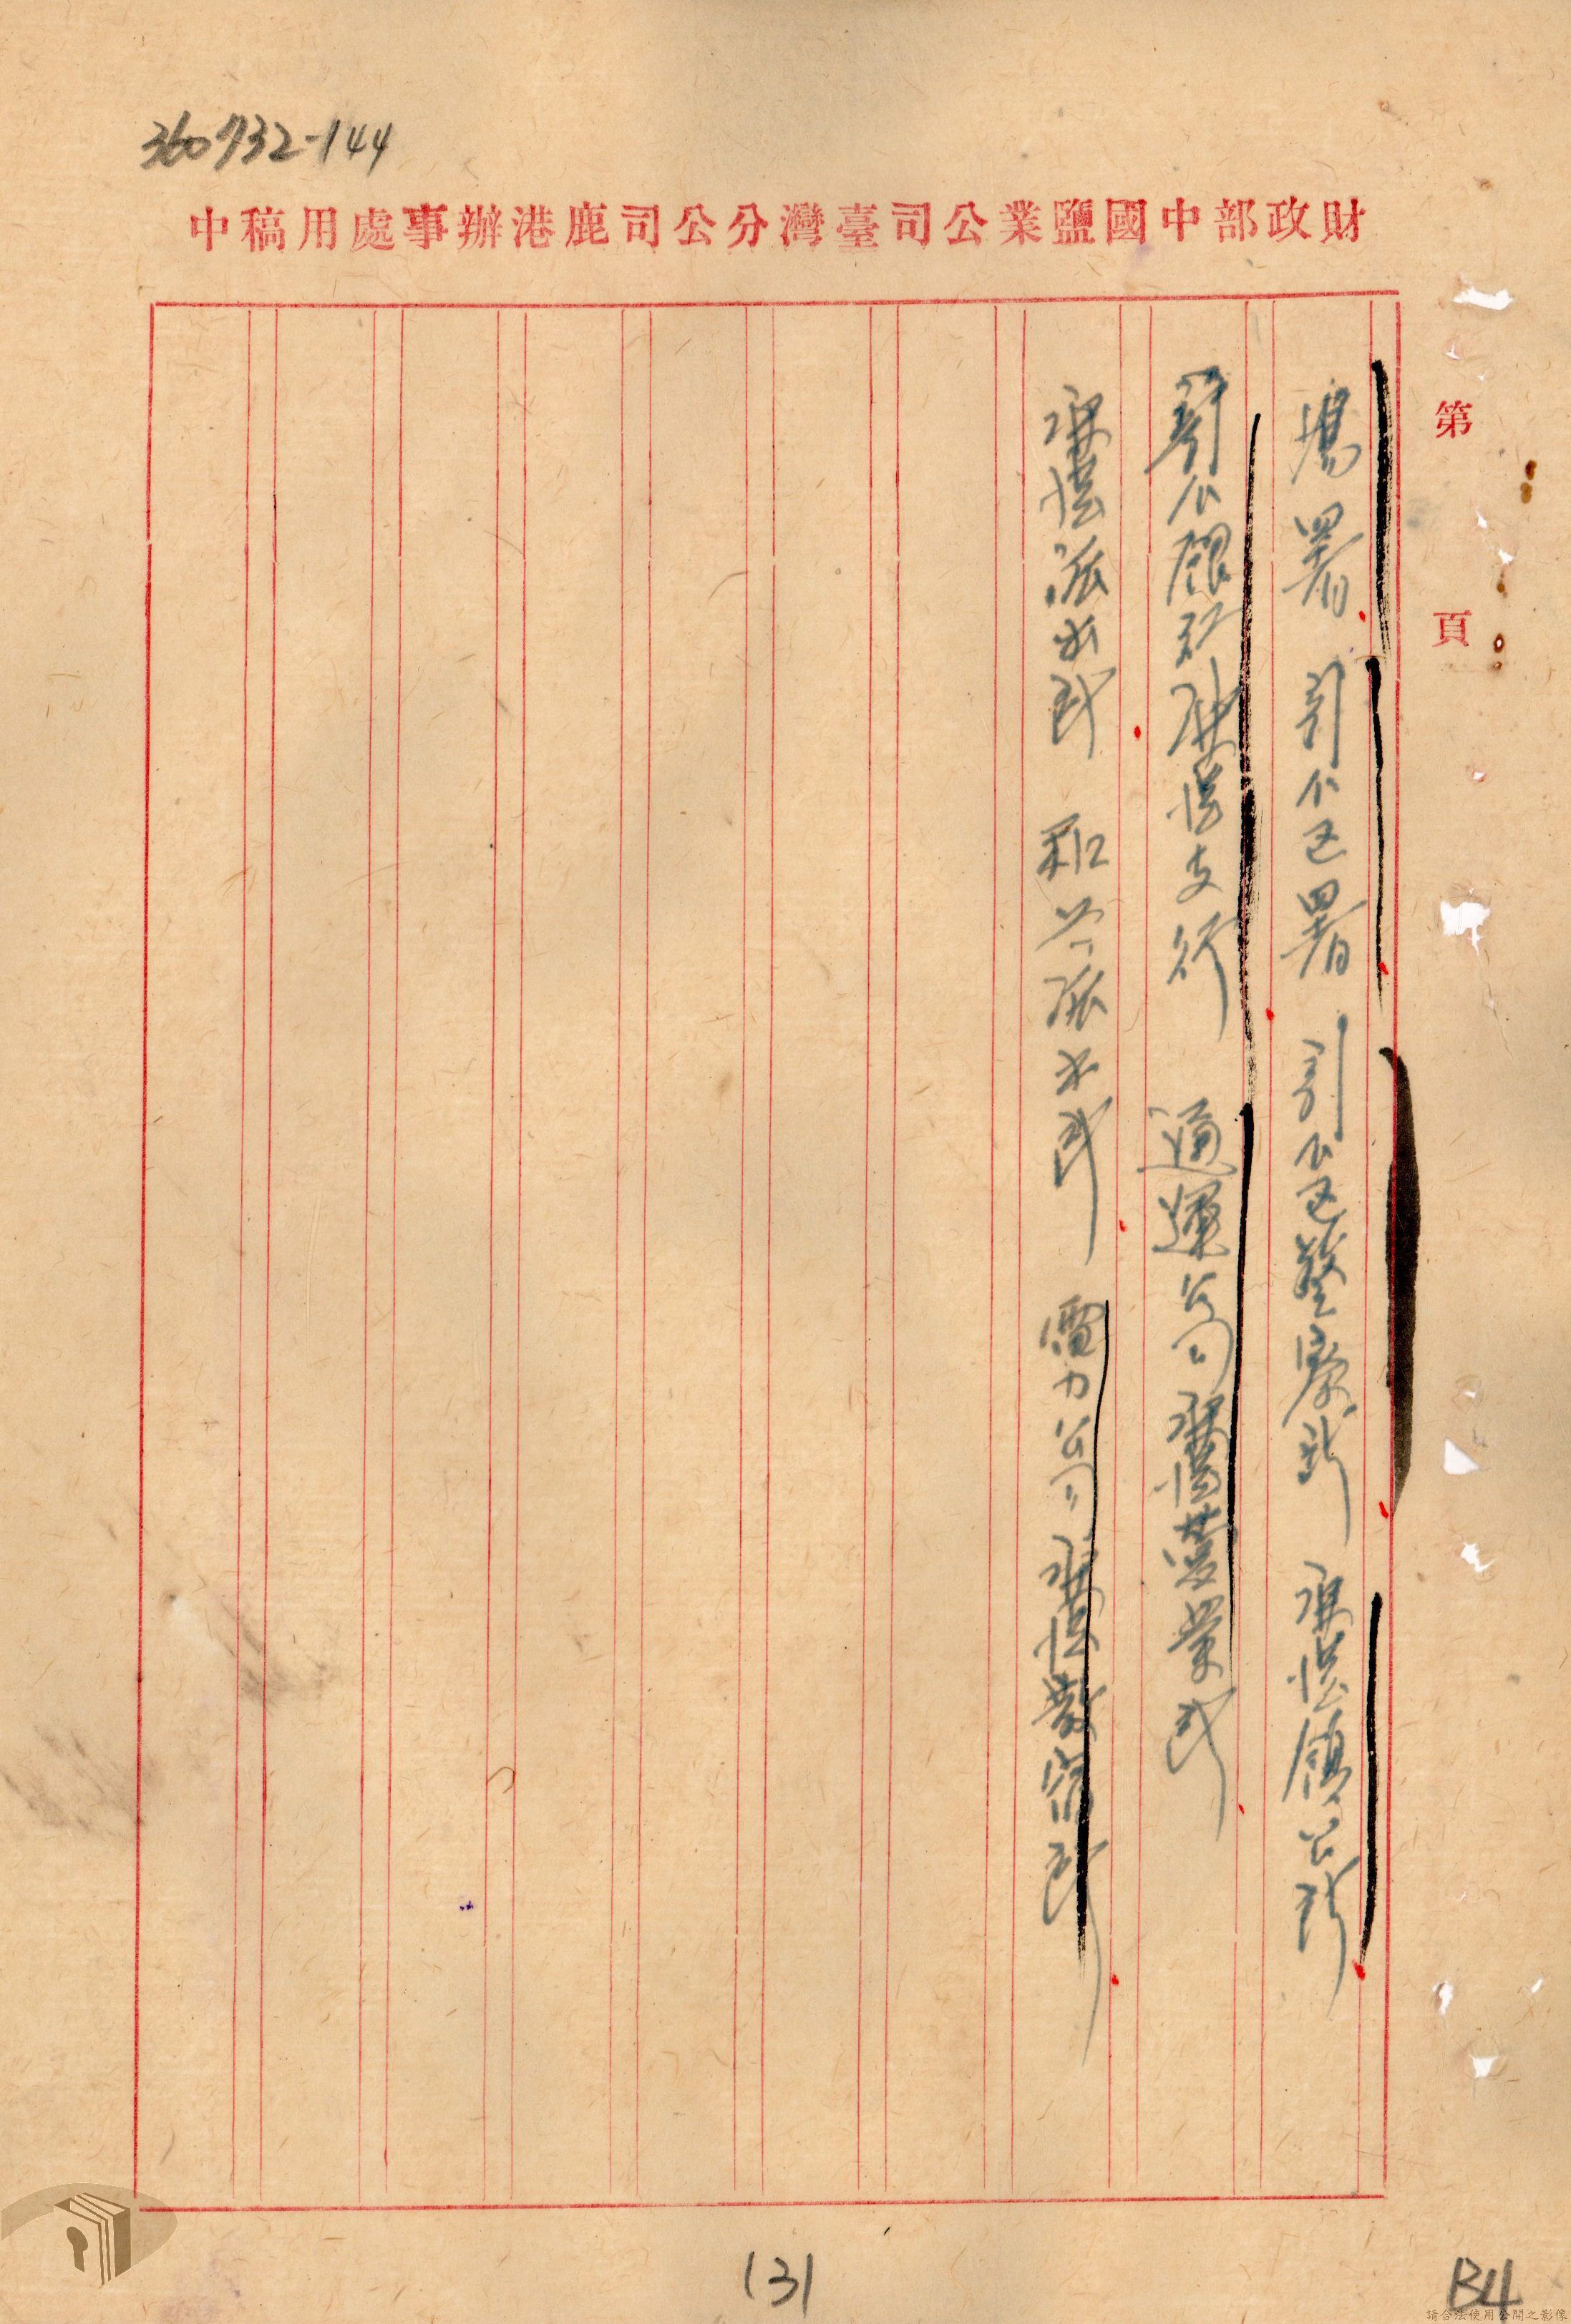 360732-144
財政部中國鹽業公司臺灣分公司鹿港辦事處用稿中
第 頁
場署 彰化區署 彰化區警察所 鹿港鎮公所
彰化銀行鹿港支行 通運公司鹿港營業所
鹿港派出所 和美派出所 電力公司鹿港散宿所
131
134
請合法使用公開之影像